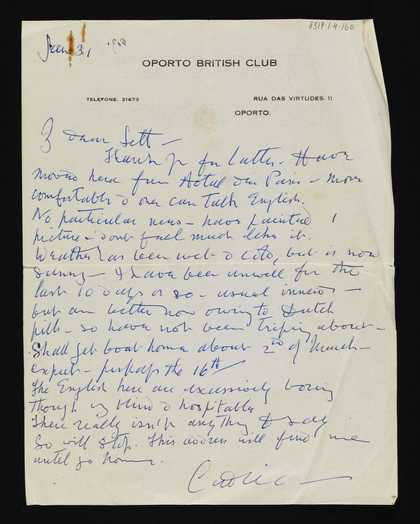 8317.1.4.160
Jan 31 1950
OPORTO BRITISH CLUB
TELEFONE. 21673
RUA DAS VIRTUDES, 11
OPORTO.
dear Sett —
Thanks for letter — Have
moved here from Hotel de Paris — more
comfortable & one can talk English.
No particular news — have painted 1
picture — dont feel much like it.
Weather has been wet & cold, but is now
sunny — I have been unwell for the
last 10 days or so — usual innerds —
but am better now owing to Dutch
pills — so have not been about —
Shall get boat home about 2nd of March —
expect — perhaps the 16th
The English here are excessively boring
though v kind & hospitable
There really isn't anything to say
So will stop. This address will find me
until go home.
Cedric